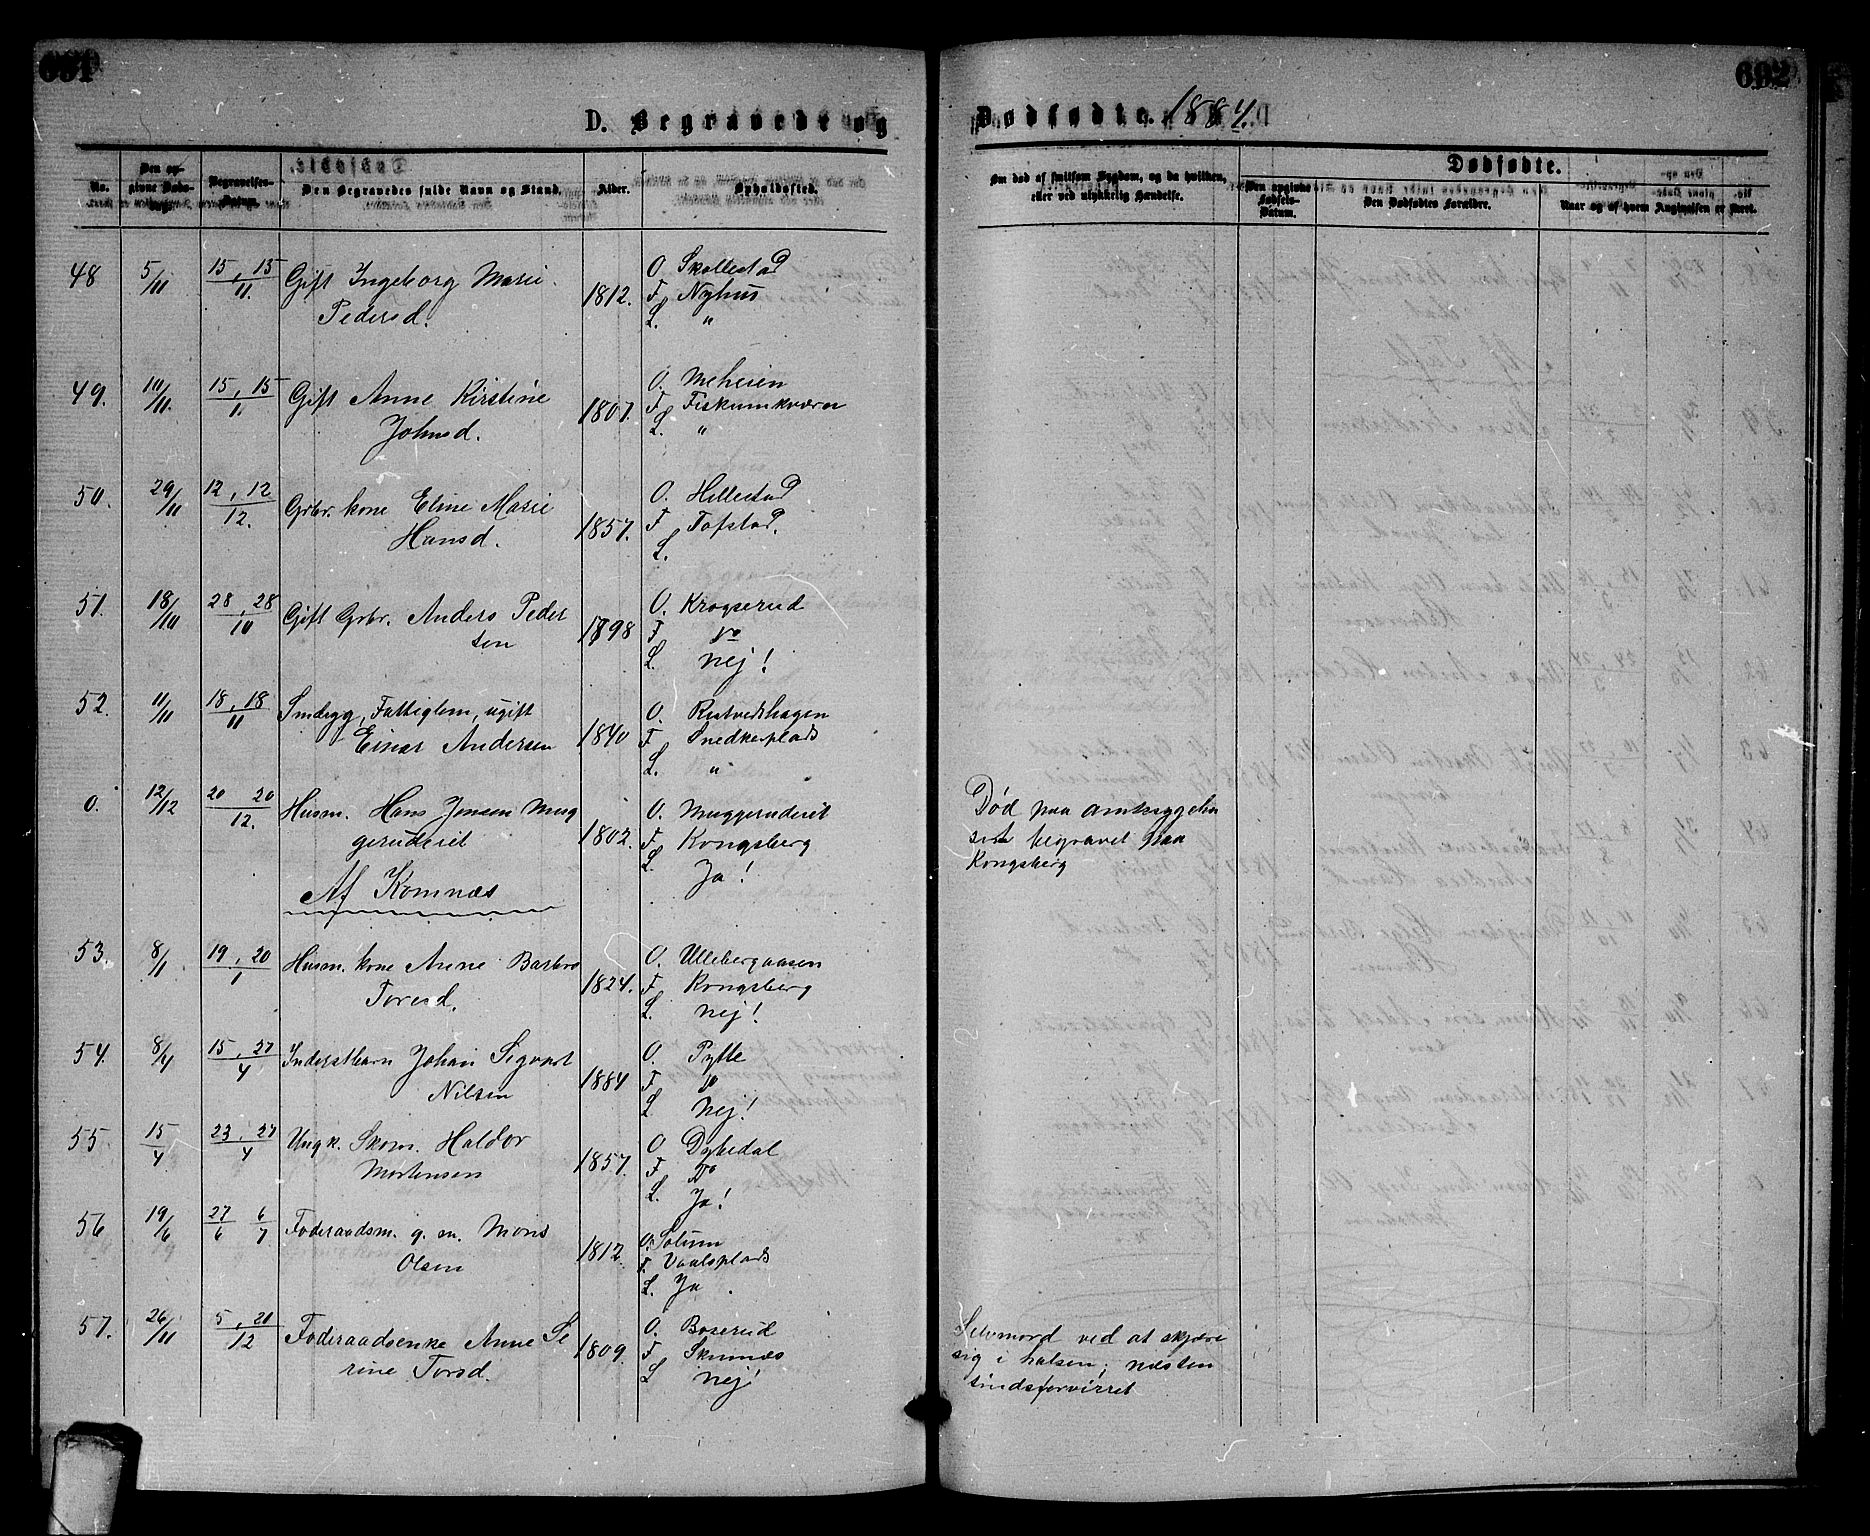 691
692
D. Begravede og
Dødfødte. 1884.
No.
Den opgivne Døds-Dag.
Begravelses-Datum.
Den Begravedes fulde Navn og Stand.
Alder.
Opholdssted.
Om død af smitsom Sygdom, og da hvilken, eller ved ulykkelig Hændelse.
Dødfødte.
Den opgivne Fødsels-Datum.
Den Dødfødtes Forældre.
Naar og af hvem Angivelsen er skeet.
48 5/11 15, 15/11. Gift Ingeborg Marie
Pedersd. 1812.
O. Skollestad
F. Nyhus
L. "
49. 10/11. 15, 15/1. Gift Anne Kirstine
Johnsd. 1807.
O. Meheien
F. Fiskumkværn
L. "
50. 29/11 12, 12/12. Grbr. kone Eline Marie
Hansd. 1857.
O. Hillestad
F. Tofstad.
L.
51. 18/10 28, 28/10 Gift Grbr. Anders Peder
sen 1798
O. Krogserud
F. Do
L. Nej!
52. 11/11 18, 18/11 Smdegg, Fattiglem, ugift
Einar Andersen 1840
O. Rustvedhagen
F. Snedkerplads
L. "
0. 12/12 20 20/12. Husm. Hans Jensen Mug
gerudeiet 1802.
O. Muggerudeiet
F. Kongsberg
L. Ja!
Død paa amtssygehu
set begravet paa
Kongsberg
Af Komnæs
53. 8/1. 19, 20/1 Husm. kone Anne Barbro
Toresd. 1824.
O. Ullebergaasen
F. Kongsberg
L. Nej!
54. 8/4 15, 27/4 Inderstbarn Johan Sigvart
Nilsen 1884
O. Pytte
F. Do
L. Nej!
55. 15/4 23, 27/4 Ungk. Skom. Haldor
Mortensen 1857.
O. Dybedal
F. Do
L. Ja!
56 19/6 27/6 6/7 Føderaadsm. g. m. Mons
Olsen 1812.
O. Solum
F. Vaalsplads
L. Ja.
57. 26/11 5, 21/12 Føderaadsenke Anne Se
rine Torsd. 1809.
O. Boserud
F. Skumnæs
L. Nej!
Selvmord ved at skjære
sig i halsen; næsten
sindsforvirret